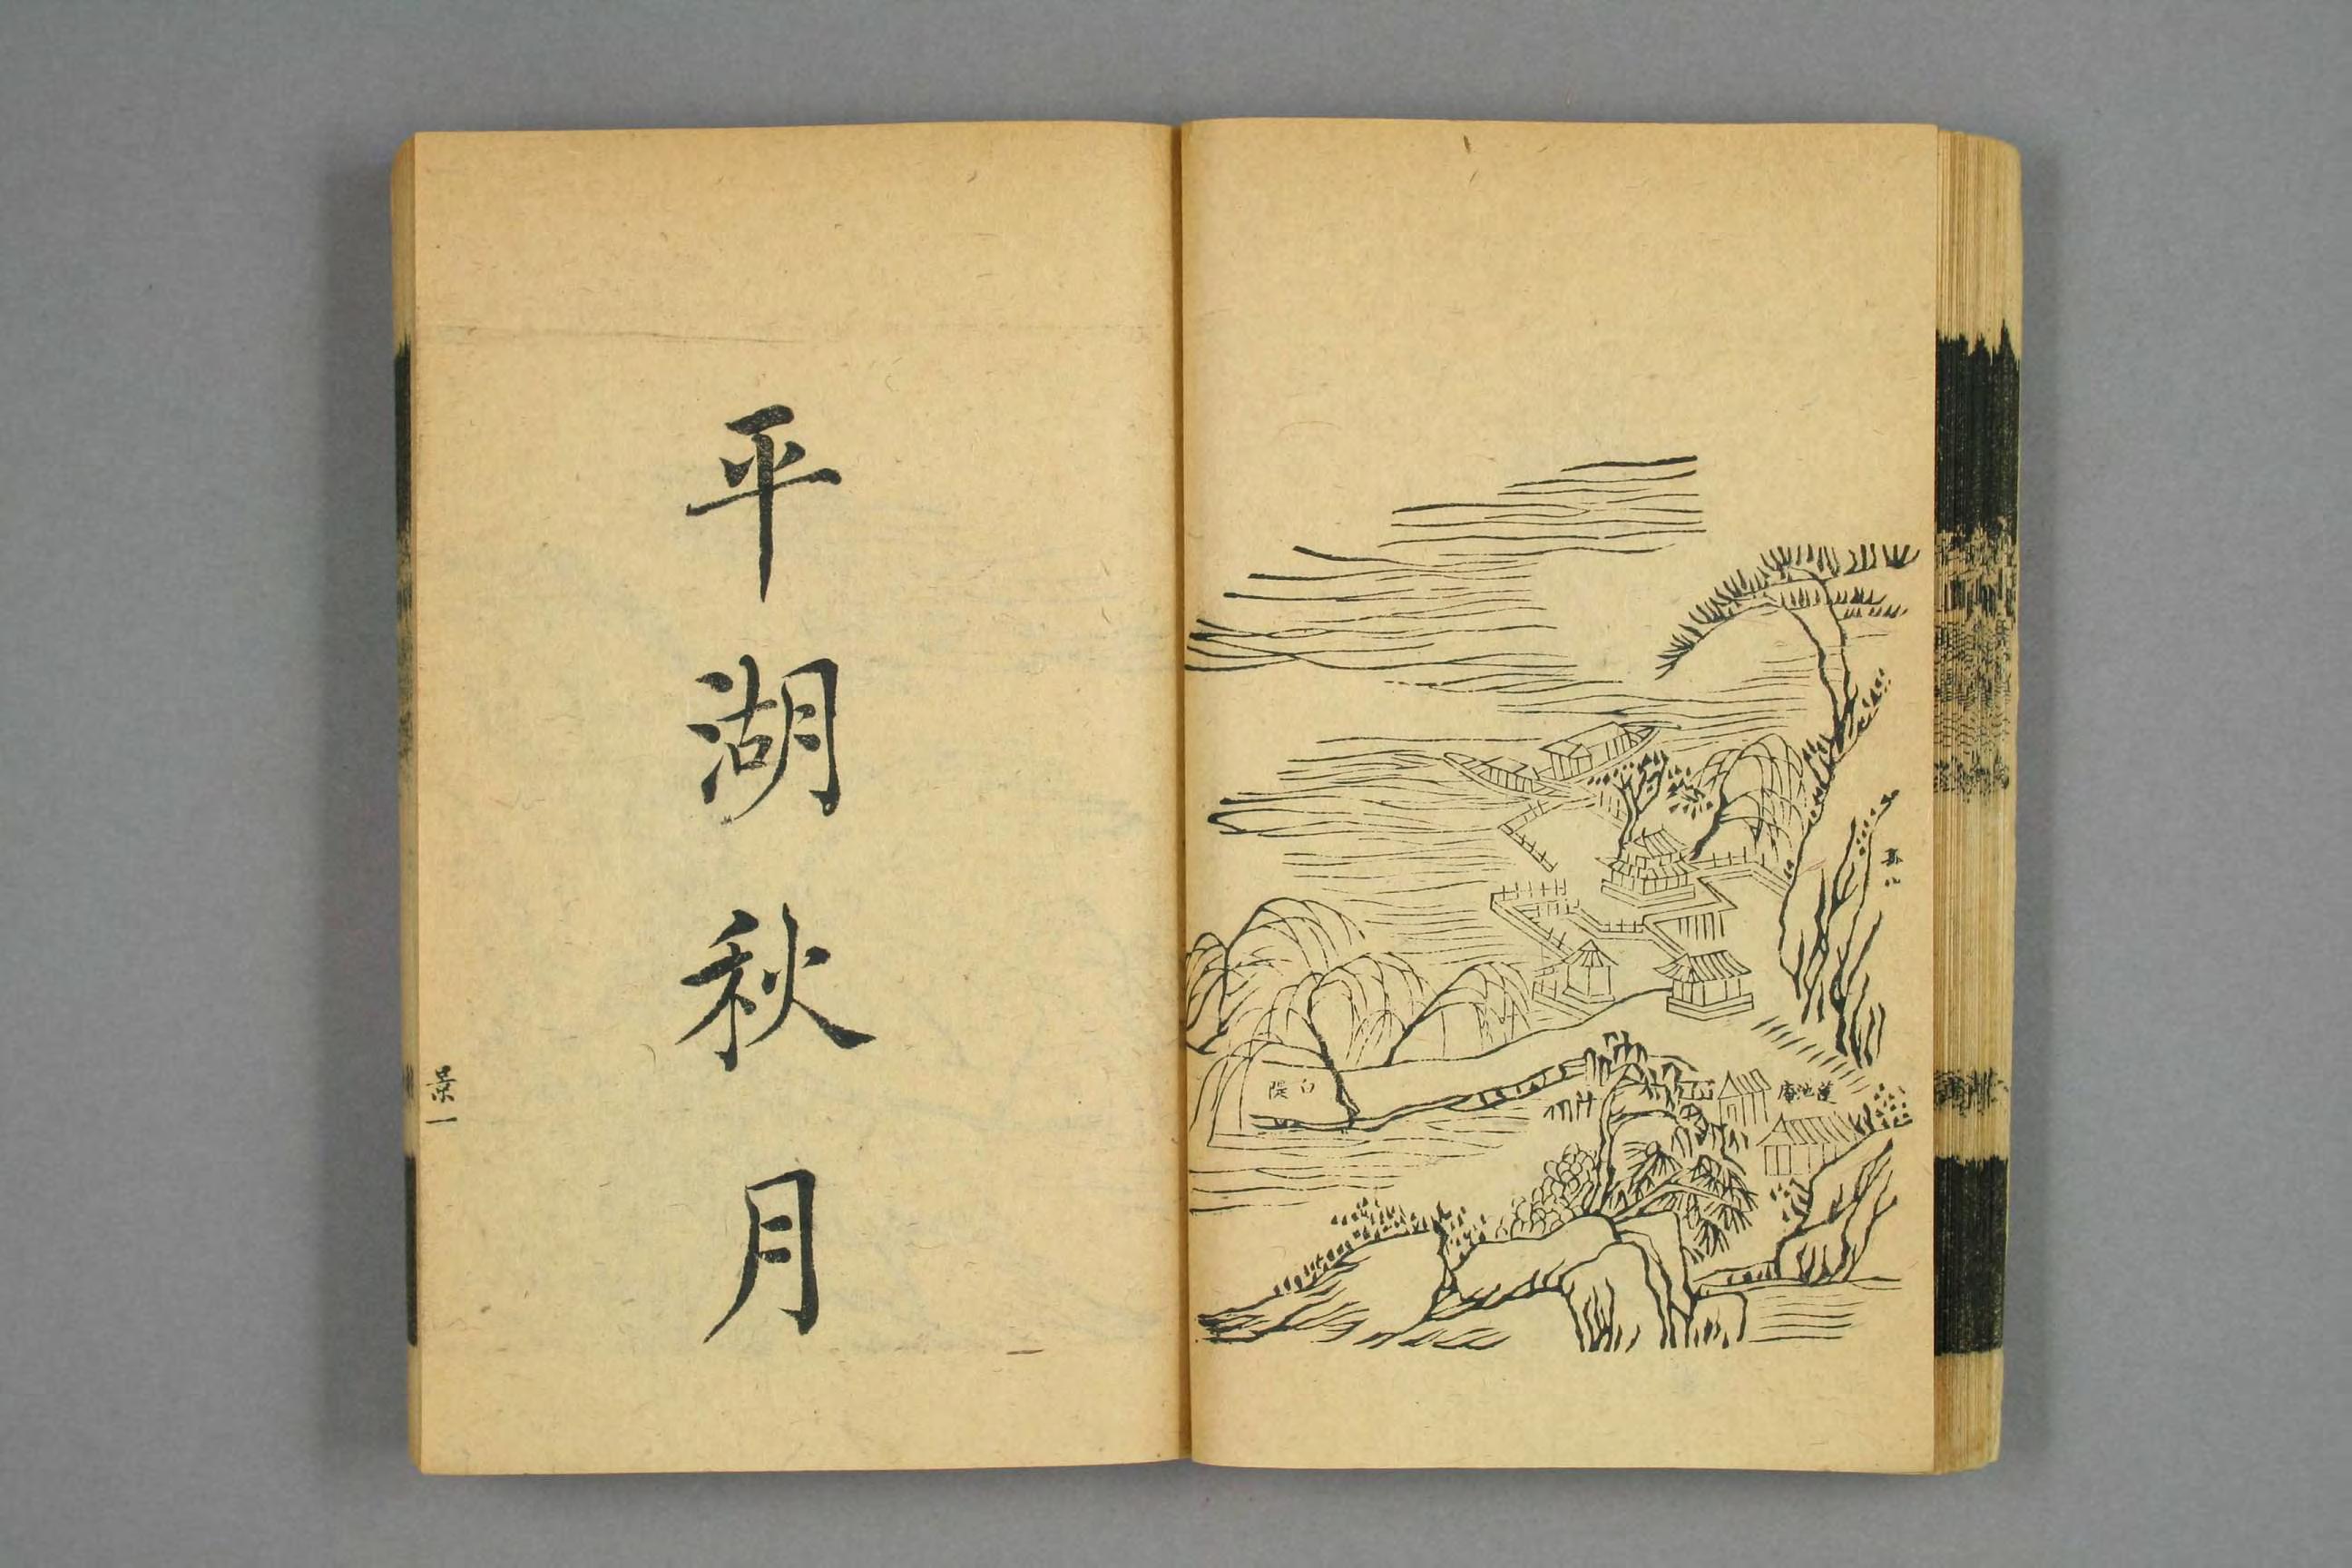 孤山
蓮池庵
白隄
平湖秋月
景一